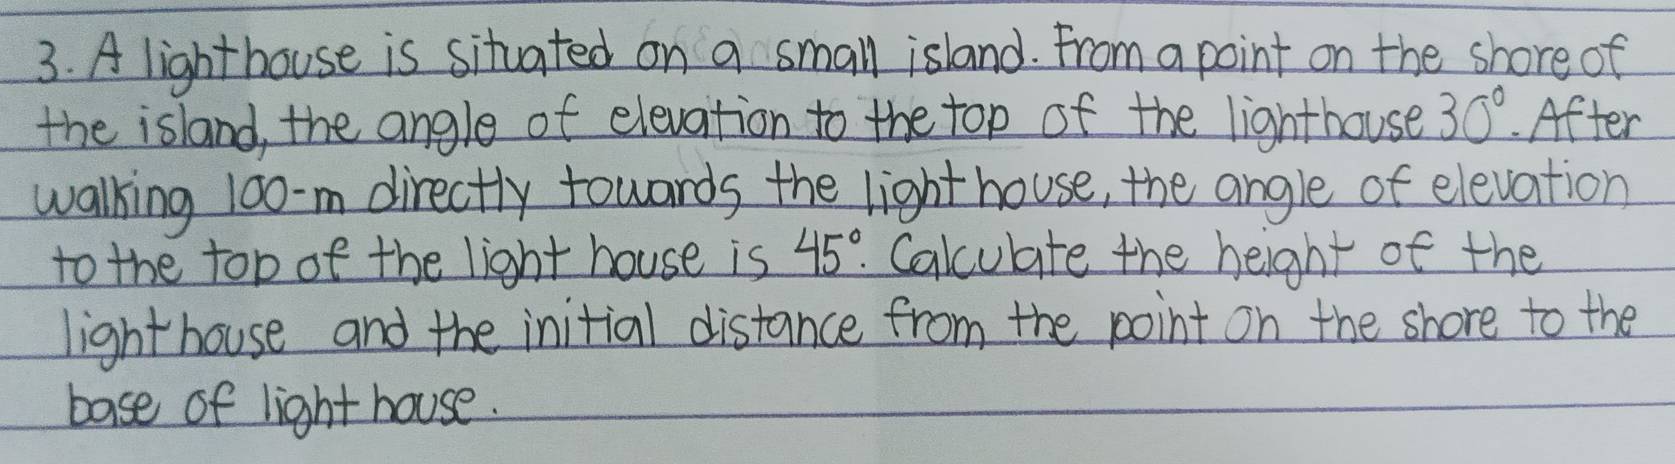 3. A lighthouse is situated on a small island. From a point on the shore of
the island, the angle of elevation to the top of the lighthouse 30°. After
walking 100-m directly towards the light house, the angle of elevation
to the top of the light house is 45°. Calculate the height of the
light house and the initial distance from the point on the shore to the
base of light house.